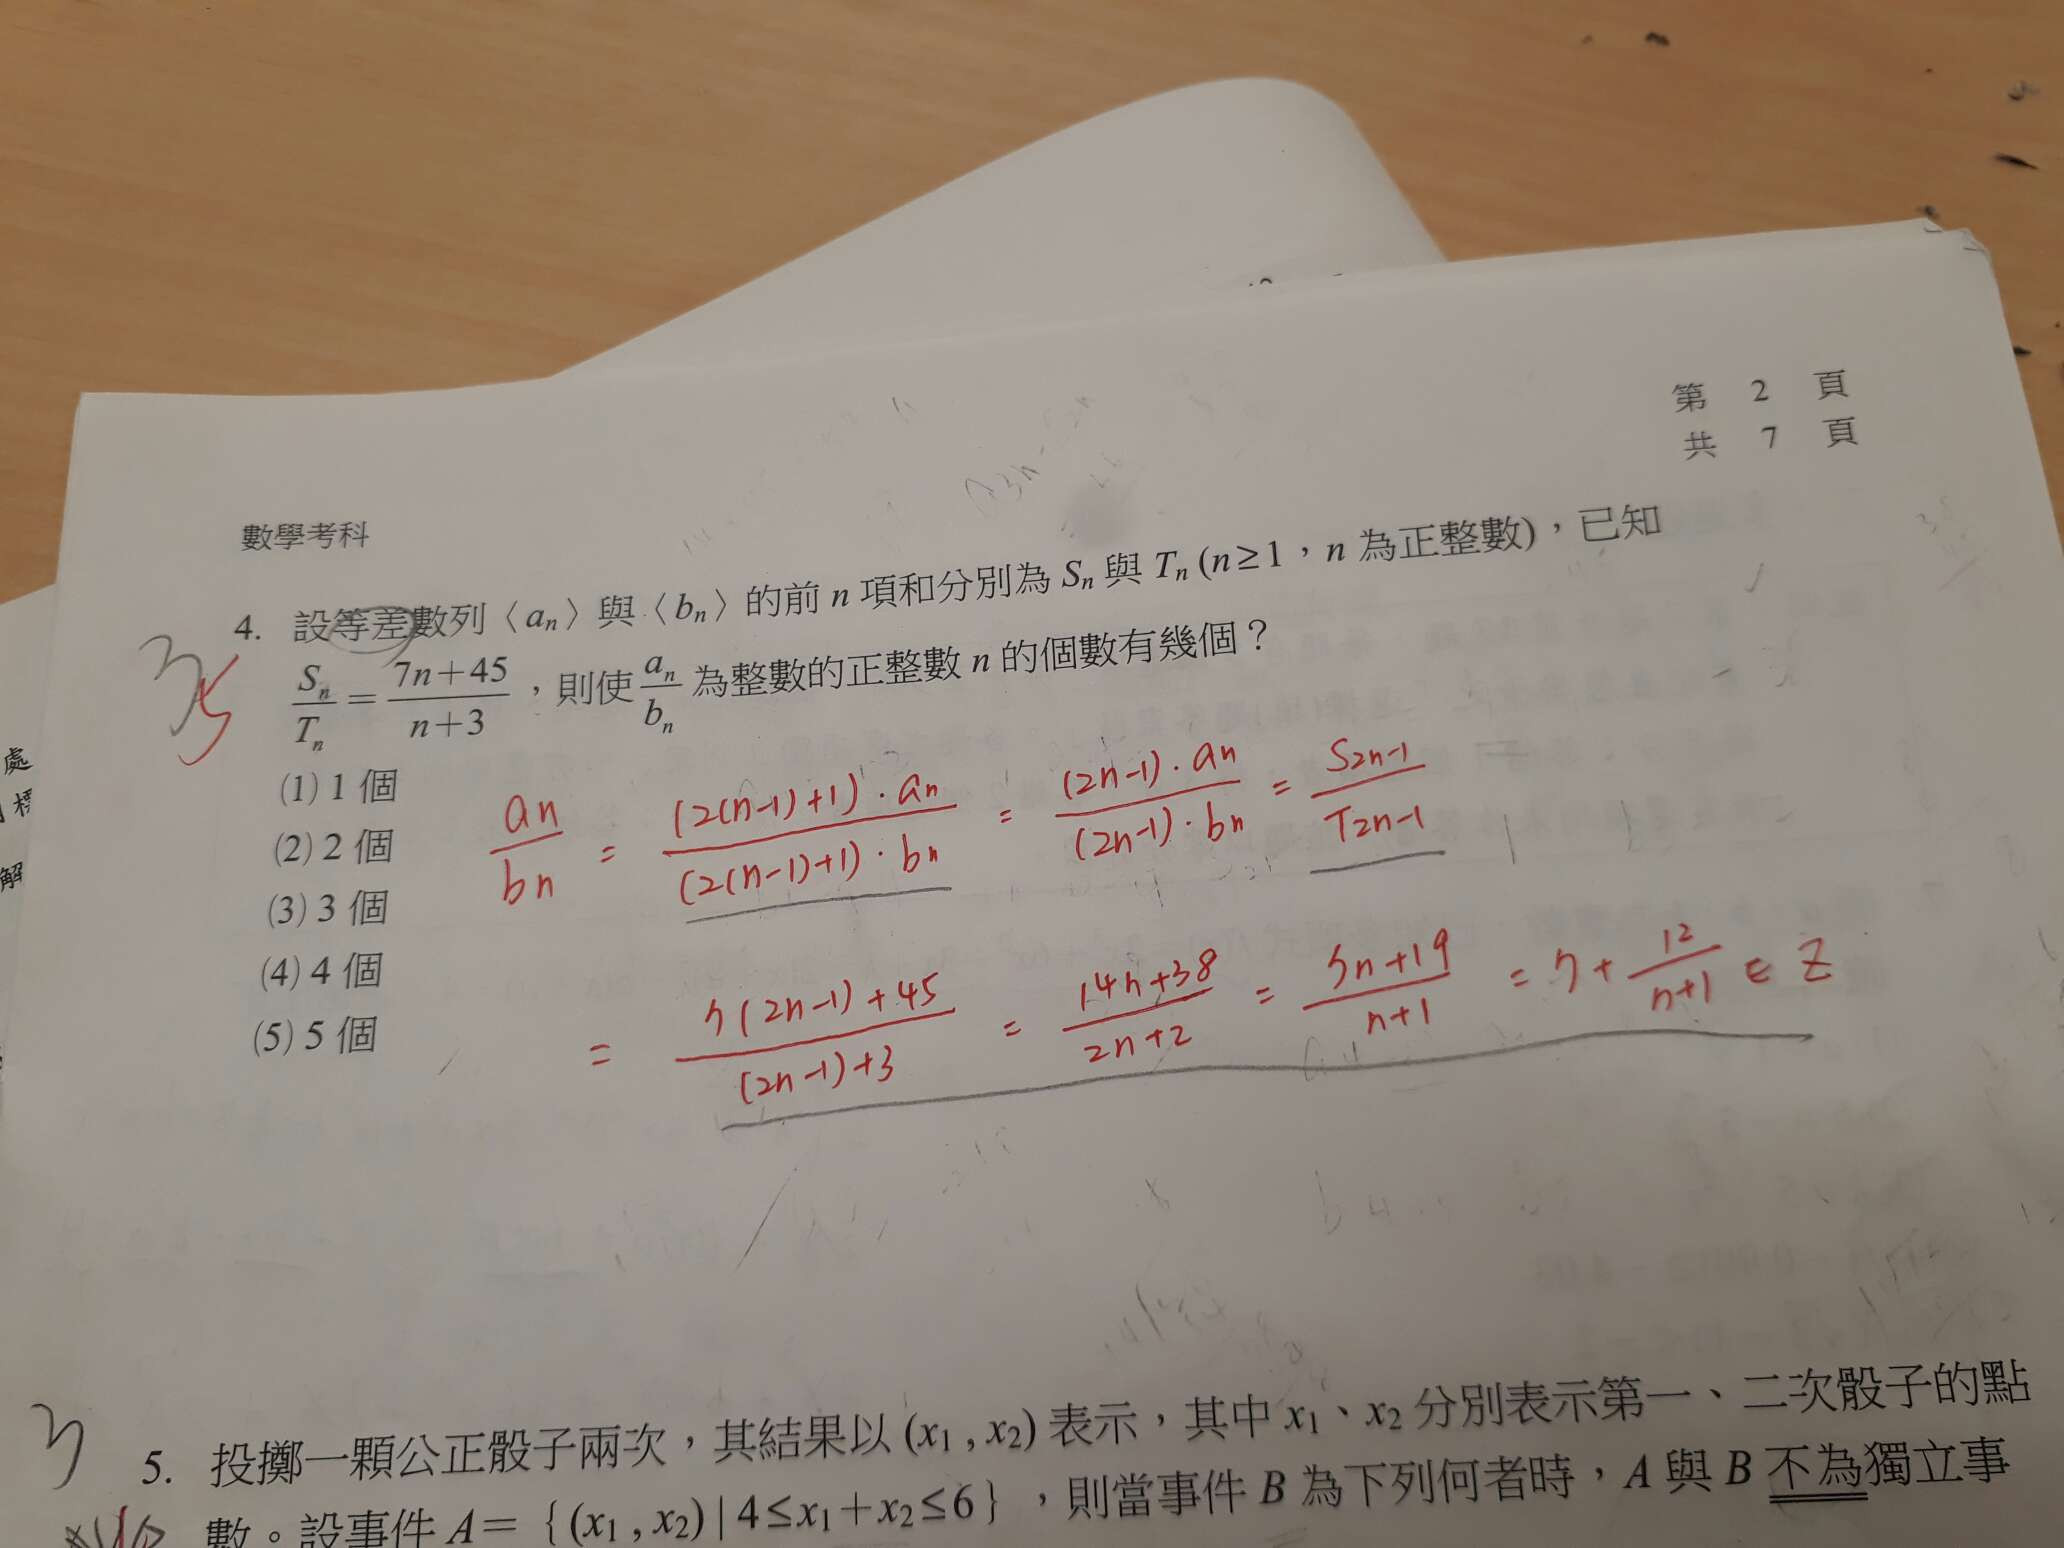 第 2 頁
共 7 頁
數學考科
4. 設等差數列〈a_n〉與〈b_n〉的前 n 項和分別為 S_n 與 T_n (n≥1，n 為正整數)，已知
S_n/T_n = (7n+45)/(n+3)，則使 a_n/b_n 為整數的正整數 n 的個數有幾個？
(1) 1 個
(2) 2 個
(3) 3 個
(4) 4 個
(5) 5 個
3
5
an/bn = ((2(n-1)+1)·an)/((2(n-1)+1)·bn) = ((2n-1)·an)/((2n-1)·bn) = S2n-1/T2n-1
= (7(2n-1)+45)/((2n-1)+3) = (14n+38)/(2n+2) = (7n+19)/(n+1) = 7+12/(n+1) ∈ Z
處
解
5. 投擲一顆公正骰子兩次，其結果以 (x₁ , x₂) 表示，其中 x₁、x₂ 分別表示第一、二次骰子的點
數。設事件 A＝{(x₁ , x₂) | 4≤x₁+x₂≤6}，則當事件 B 為下列何者時，A 與 B 不為獨立事